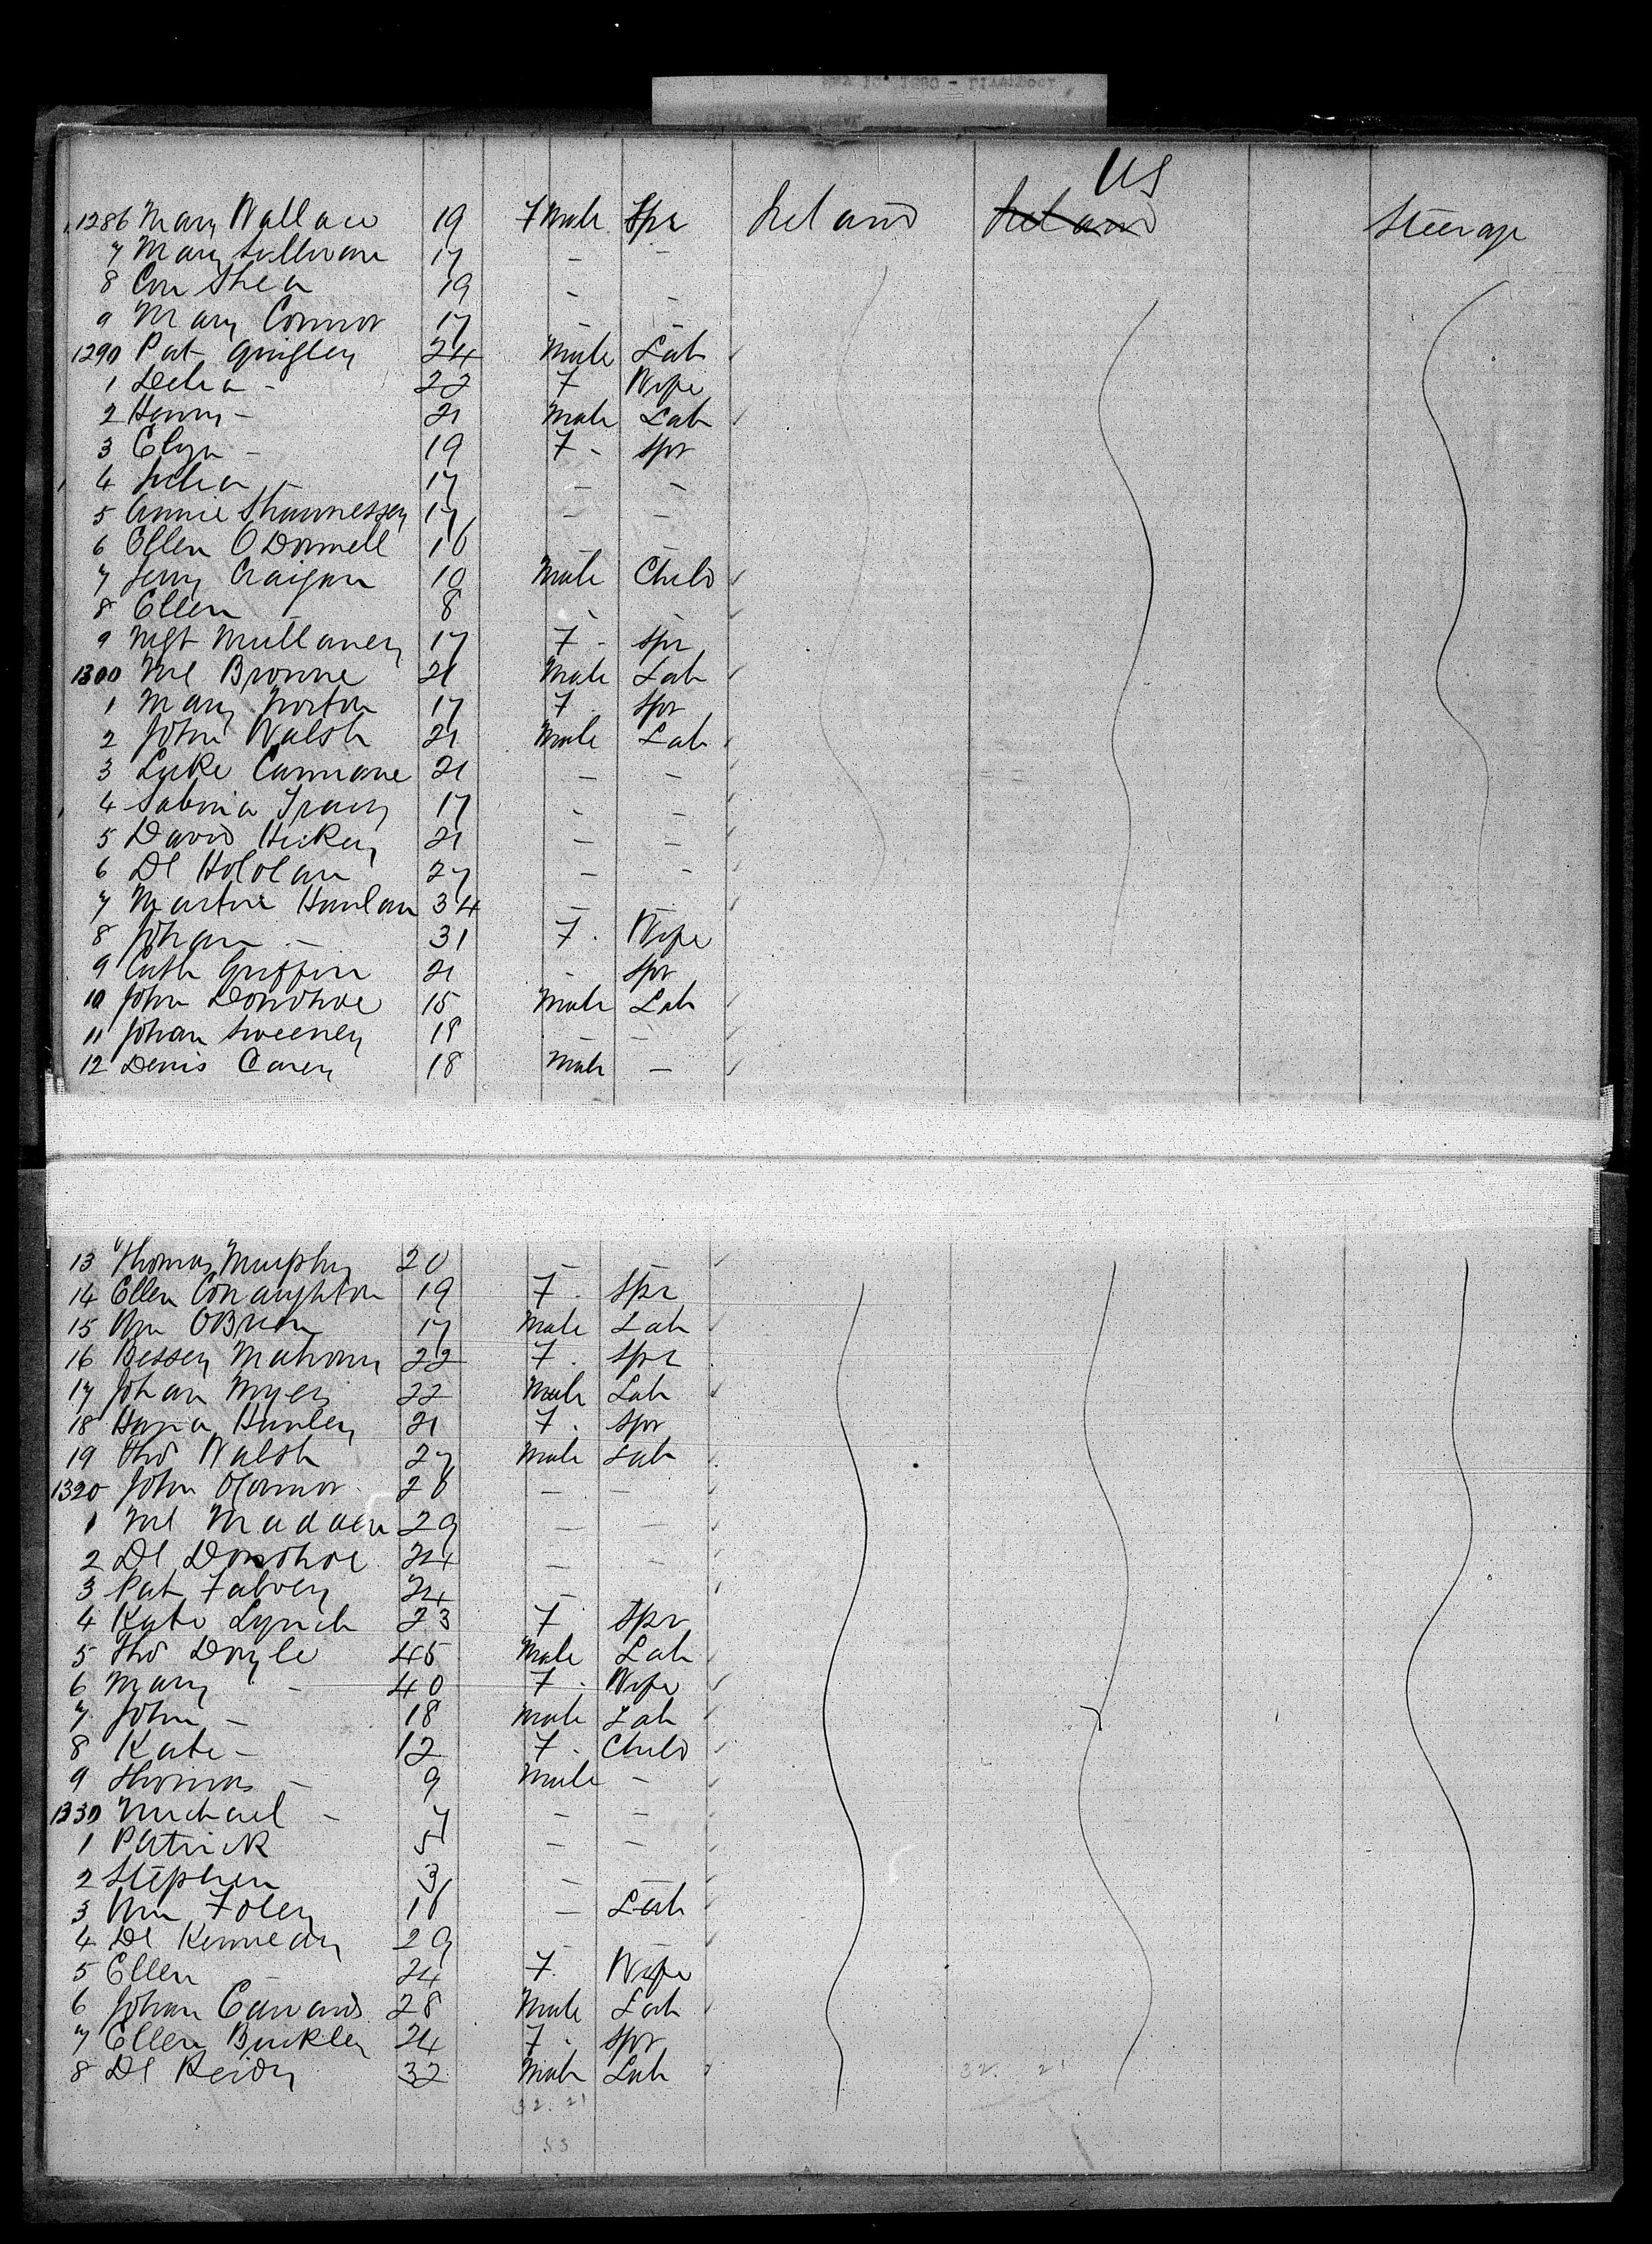 US
1286 Mary Wallace 19 F Male Spr Ireland Ireland Steerage
7 Mary Sullivan 17 - -
8 Con Shea 19 - -
9 Mary Connor 17 - -
1290 Pat Quigley 24 Male Lab
1 Delia - 22 F Wife
2 Henry - 21 Male Lab
3 Eliza - 19 F - Spr
4 Julia - 17 - -
5 Annie Shaunessey 17 - -
6 Ellen O Donnell 16 - -
7 Jerry Craigan 10 Male Child
8 Ellen - 8 - -
9 Mgt Mullaney 17 F - Spr
1300 Ml Browne 21 Male Lab
1 Mary Norton 17 F Spr
2 John Walsh 21 Male Lab
3 Luke Cannane 21 - -
4 Sabina Tracy 17 - -
5 David Hickey 21 - -
6 Dl Hololan 27 - -
7 Martin Hanlan 34 - -
8 Johan - 31 F. Wife
9 Cath Griffin 21 - Spr
10 John Donohoe 15 Male Lab
11 Johan Sweeney 18 - -
12 Denis Carey 18 Male -
13 Thomas Murphy 20 - -
14 Ellen Conaughton 19 F. Spr
15 Wm OBrien 17 Male Lab
16 Bessey Mahony 22 F. Spr
17 Johan Myers 22 Male Lab
18 Hanna Hanley 21 F. Spr
19 Thos Walsh 27 Male Lab
1320 John OConnor 26 - -
1 Ml Madden 29 - -
2 Dl Donohoe 24 - -
3 Pat Falvey 24 - -
4 Kate Lynch 23 F Spr
5 Thos Doyle 45 Male Lab
6 Mary - 40 F. Wife
7 John - 18 Male Lab
8 Kate - 12 F - Child
9 Thomas - 9 Male -
1330 Michael - 7 - -
1 Patrick 5 - -
2 Stephen 3 - -
3 Wm Foley 16 - Lab
4 Dl Kennedy 29 - -
5 Ellen - 24 F. Wife
6 Johan Edwards 28 Male Lab
7 Ellen Buckley 24 F. Spr
8 Dl Reidy 32 Male Lab 32. 21
32. 21
53